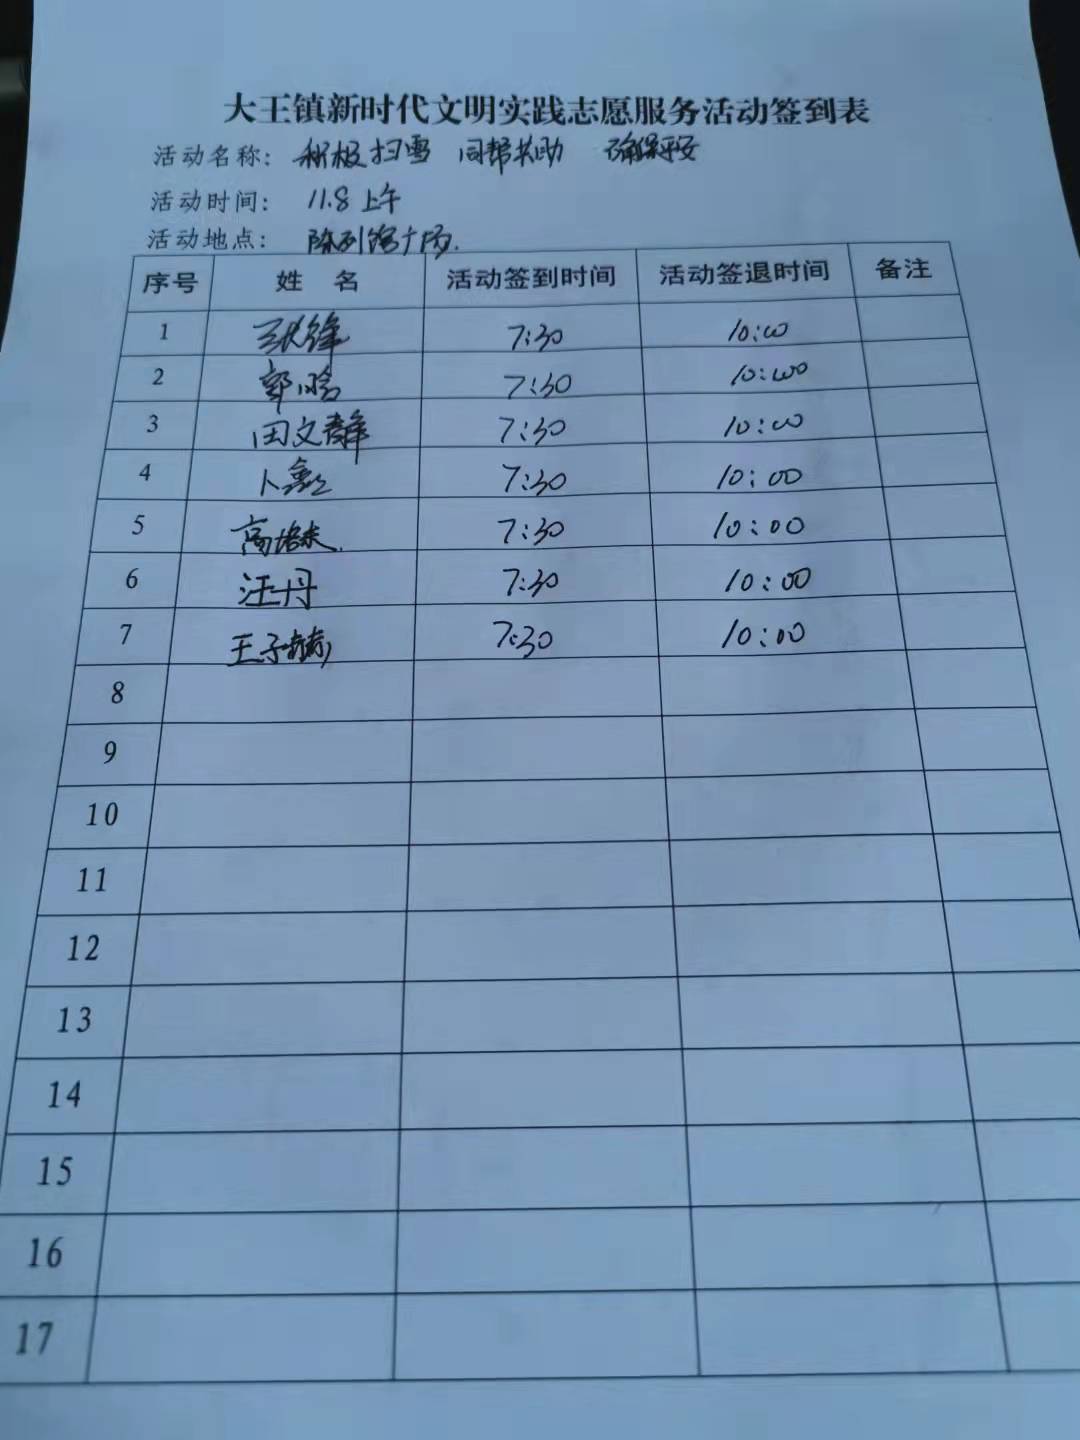 大王镇新时代文明实践志愿服务活动签到表
活动名称： 积极扫雪 同帮共助 确保平安
活动时间： 11.8 上午
活动地点： 陈列馆广场.
序号 姓 名 活动签到时间 活动签退时间 备注
1 张锋 7:30 10:00
2 郭晗 7:30 10:00
3 田文静 7:30 10:00
4 卜鑫 7:30 10:00
5 高培杰 7:30 10:00
6 汪丹 7:30 10:00
7 王子赫 7:30 10:00
8
9
10
11
12
13
14
15
16
17